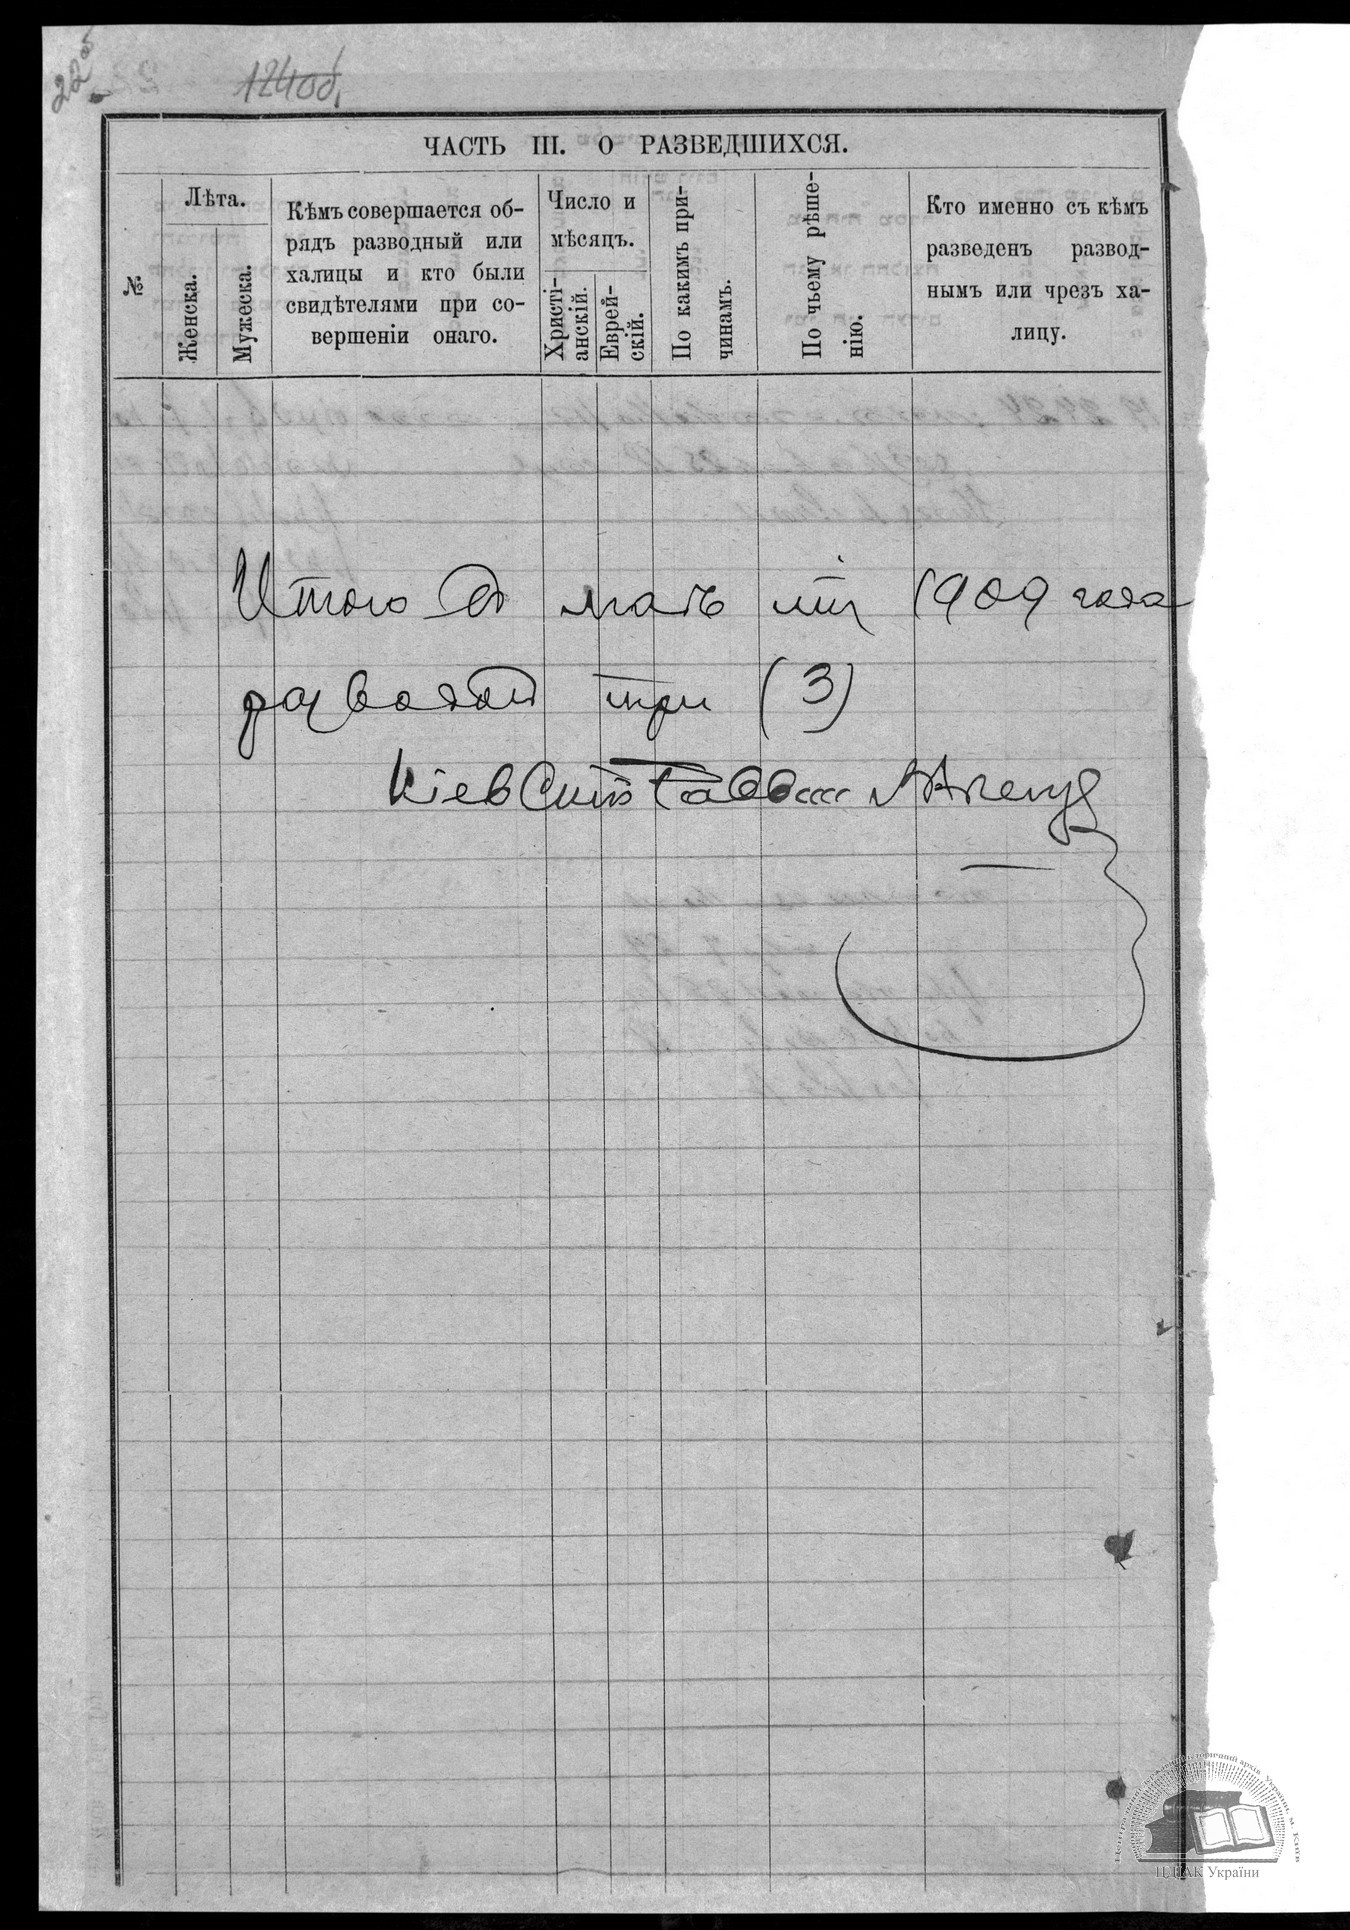 22 об
124 об.
ЧАСТЬ III. О РАЗВЕДШИХСЯ.
№
Лѣта.
Женска.
Мужеска.
Кѣмъ совершается об-
рядъ разводный или
халицы и кто были
свидѣтелями при со-
вершеніи онаго.
Число и
мѣсяцъ.
Христі-
анскій.
Еврей-
скій.
По какимъ при-
чинамъ.
По чьему рѣше-
нію.
Кто именно съ кѣмъ
разведенъ развод-
нымъ или чрезъ ха-
лицу.
Итого 1909 года
разводовъ три (3)
Кіевскій Раввинъ
ЦДІАК України